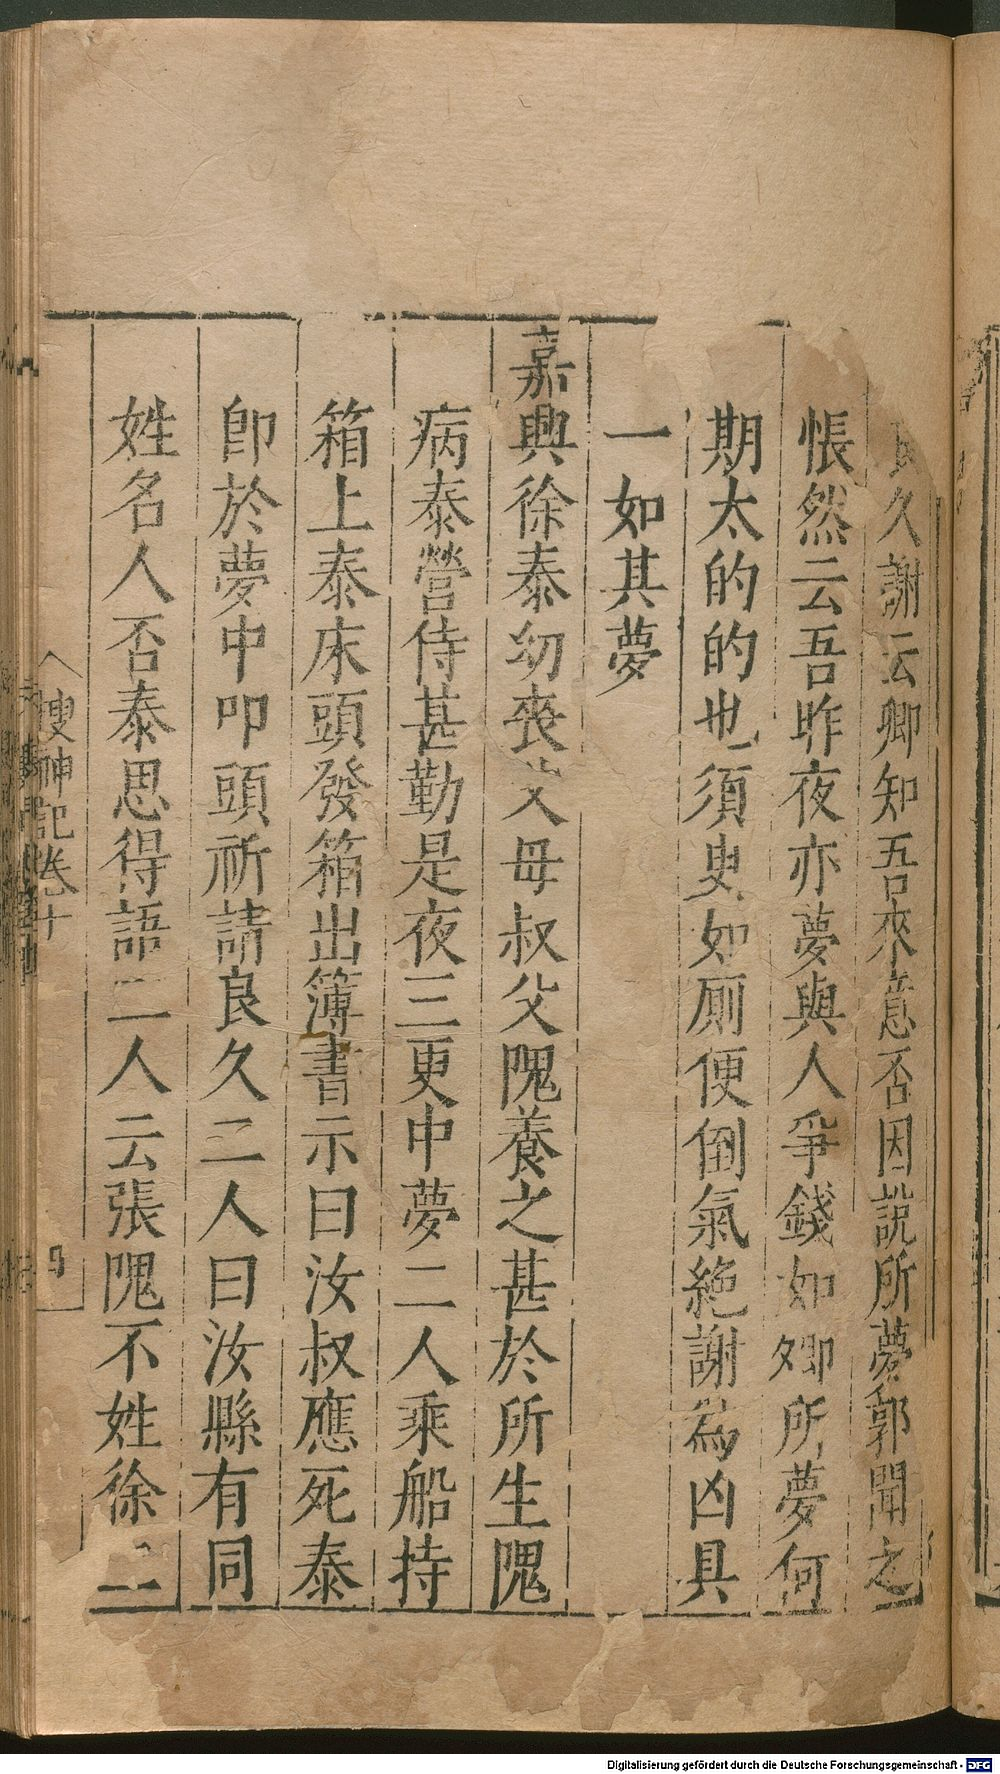 久謝云卿知吾來意否因說所夢郭聞之
悵然云吾昨夜亦夢與人爭錢如卿所夢何
期太的的也須臾如厠便倒氣絕謝為凶具
一如其夢
嘉興徐泰幼喪父母叔父隗養之甚於所生隗
病泰營侍甚勤是夜三更中夢二人乘船持
箱上泰床頭發箱出簿書示曰汝叔應死泰
卽於夢中叩頭祈請良久二人曰汝縣有同
姓名人否泰思得語二人云張隗不姓徐二
搜神記卷十
Digitalisierung gefördert durch die Deutsche Forschungsgemeinschaft - DFG